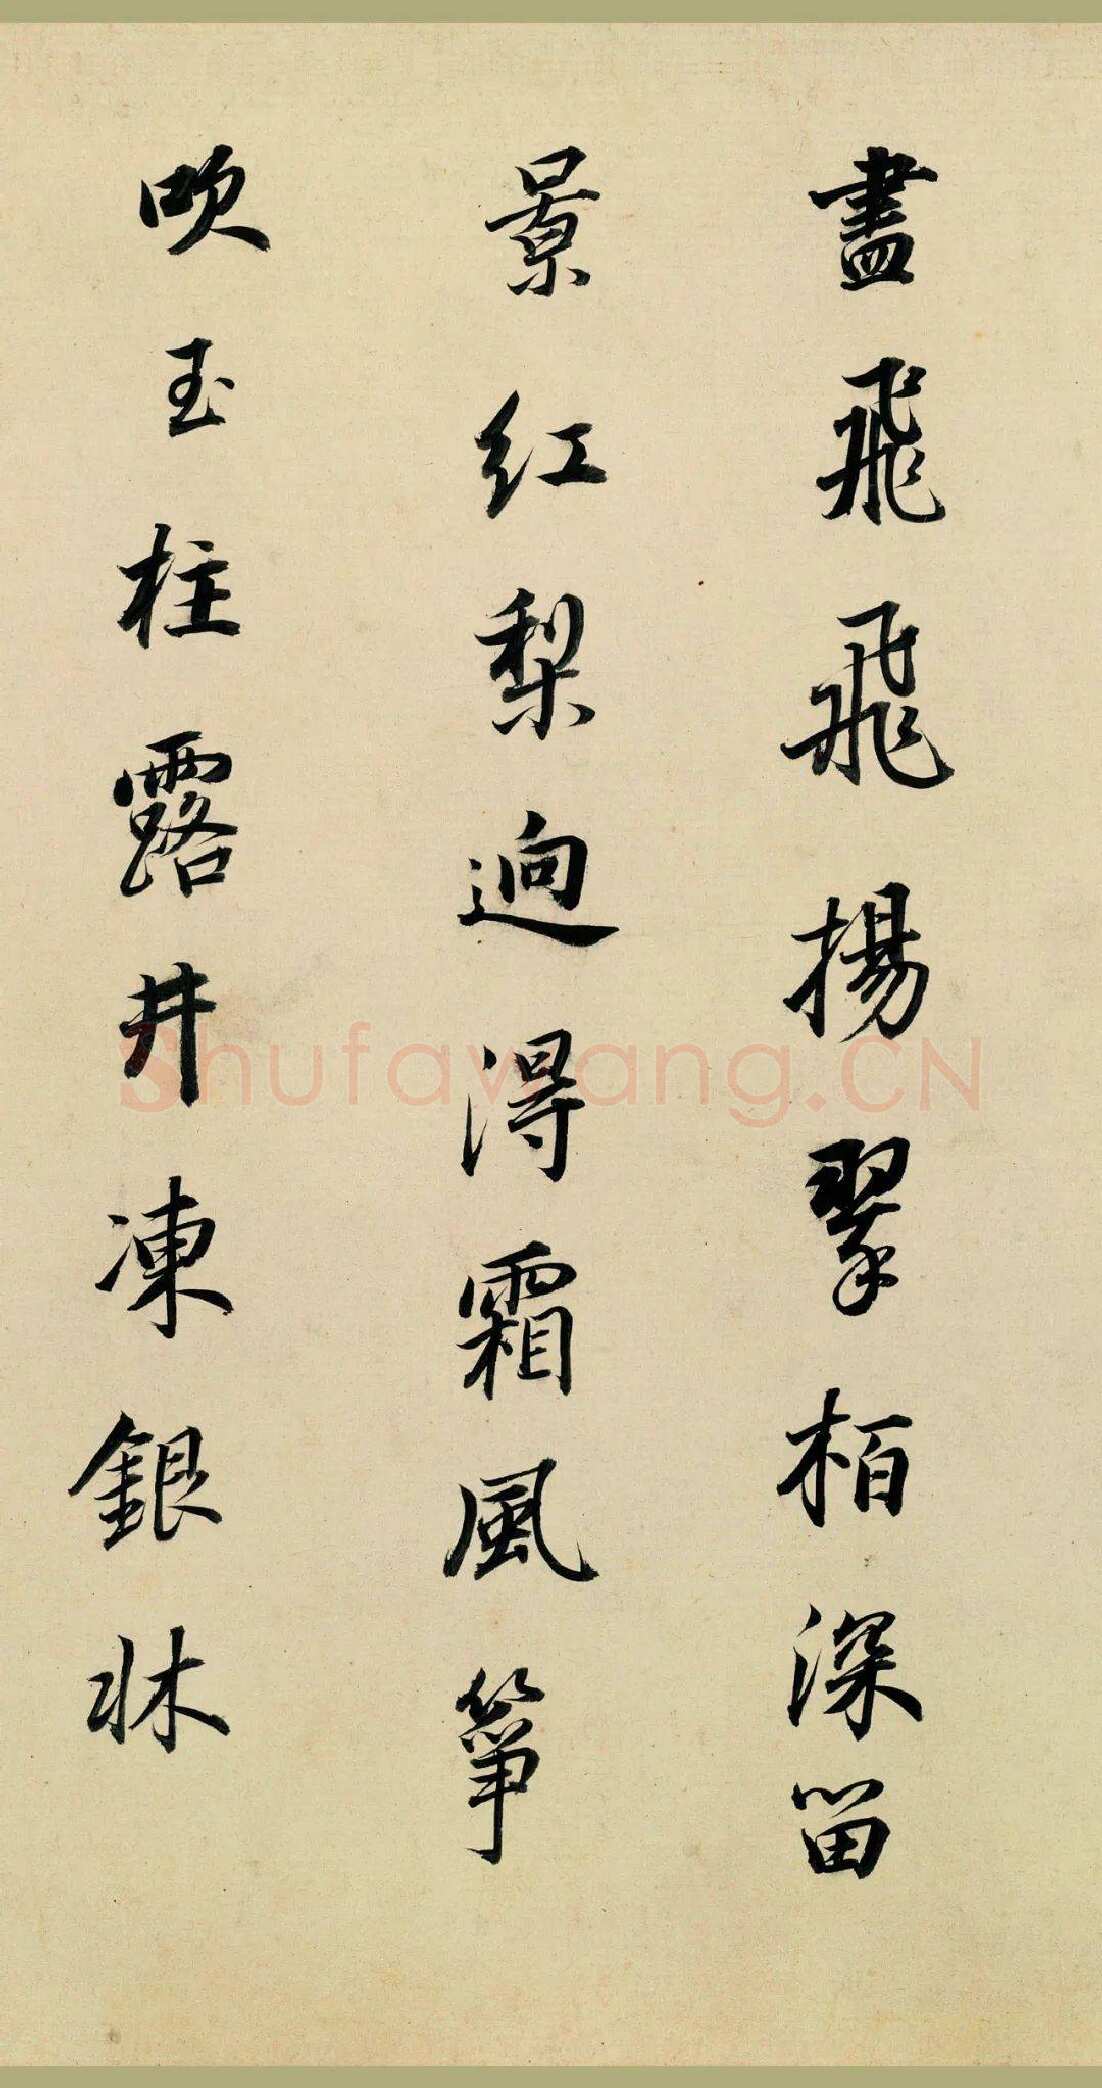 盡飛飛揚翠柏深留
景紅梨迥得霜風箏
吹玉柱露井凍銀牀
Shufawang.CN